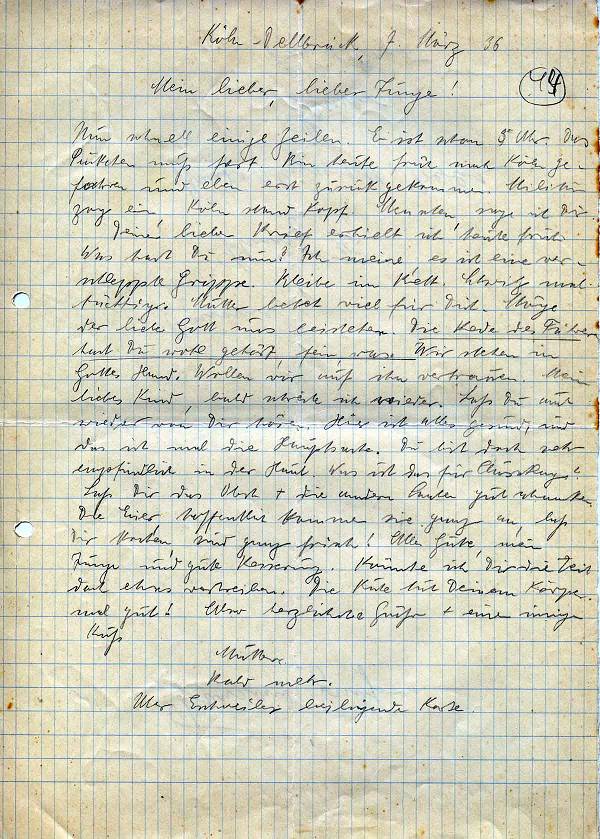 Köln-Dellbrück, 7. März 36
44
Mein lieber, lieber Junge!
Nun schnell einige Zeilen. Es ist schon 5 Uhr. Das
muß fort. Bin heute früh nach Köln ge-
fahren und eben erst zurückgekommen. Militär
zog ein, Köln stand Kopf. sage ich Dir.
Deinen lieben Brief erhielt ich heute früh.
Was hast Du nun? Ich meine, es ist eine ver-
schleppte Grippe. Bleibe im Bett. Schwitz mal
tüchtig. Mutter betet viel für Dich. Möge
der liebe Gott uns beistehen. Die Rede des Führers
hast Du wohl gehört, fein, was. Wir stehen in
Gottes Hand. Wollen wir auf ihn vertrauen. Mein
liebes Kind, bald schreibe ich wieder. Laß Du auch
wieder von Dir hören. Hier ist alles gesund, und
das ist mal die Hauptsache. Du bist doch sehr
empfindlich in der Haut. Was ist das für
Laß Dir das Obst + die andern Sachen gut schmecken.
Die Eier hoffentlich kommen sie ganz an, laß
Dir kochen, sind ganz frisch! Alles Gute, mein
Junge und gute Besserung. Könnte ich Dir die Zeit
doch etwas vertreiben. Die Ruhe tut Deinem Körper
mal gut! Also herzlichste Grüße + einen innigen
Kuß
Mutter.
Bald mehr.
beiliegende Karte.